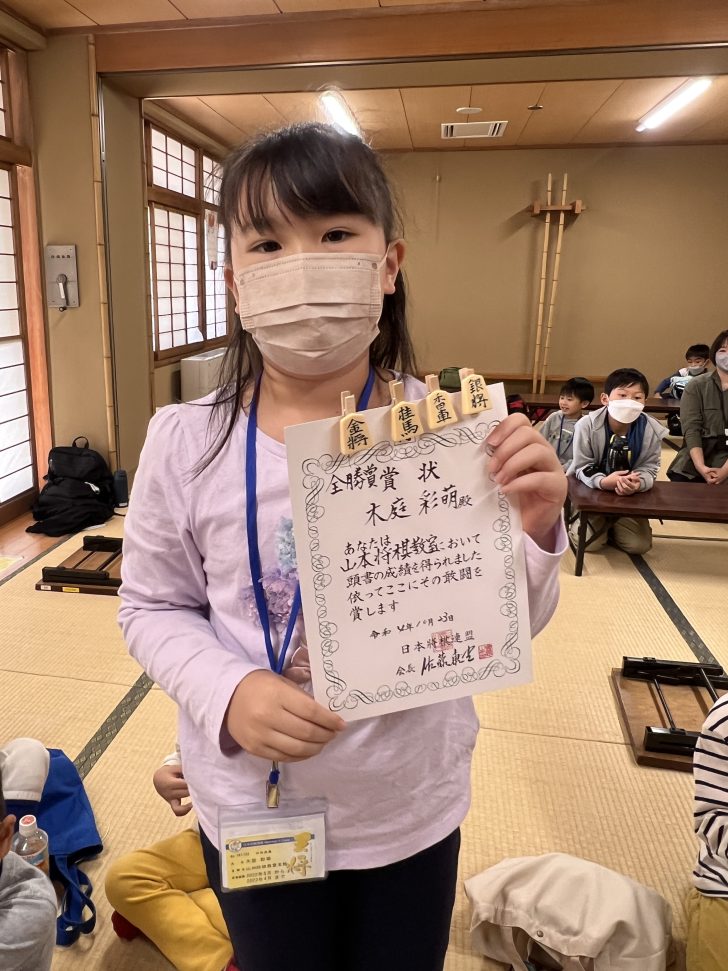 金将
桂馬
香車
銀将
全勝賞賞状
木庭 彩萌殿
あなたは
山本将棋教室において
頭書の成績を得られました
依ってここにその敢闘を
賞します
令和4年10月23日
日本将棋連盟
会長 佐藤康光
王将